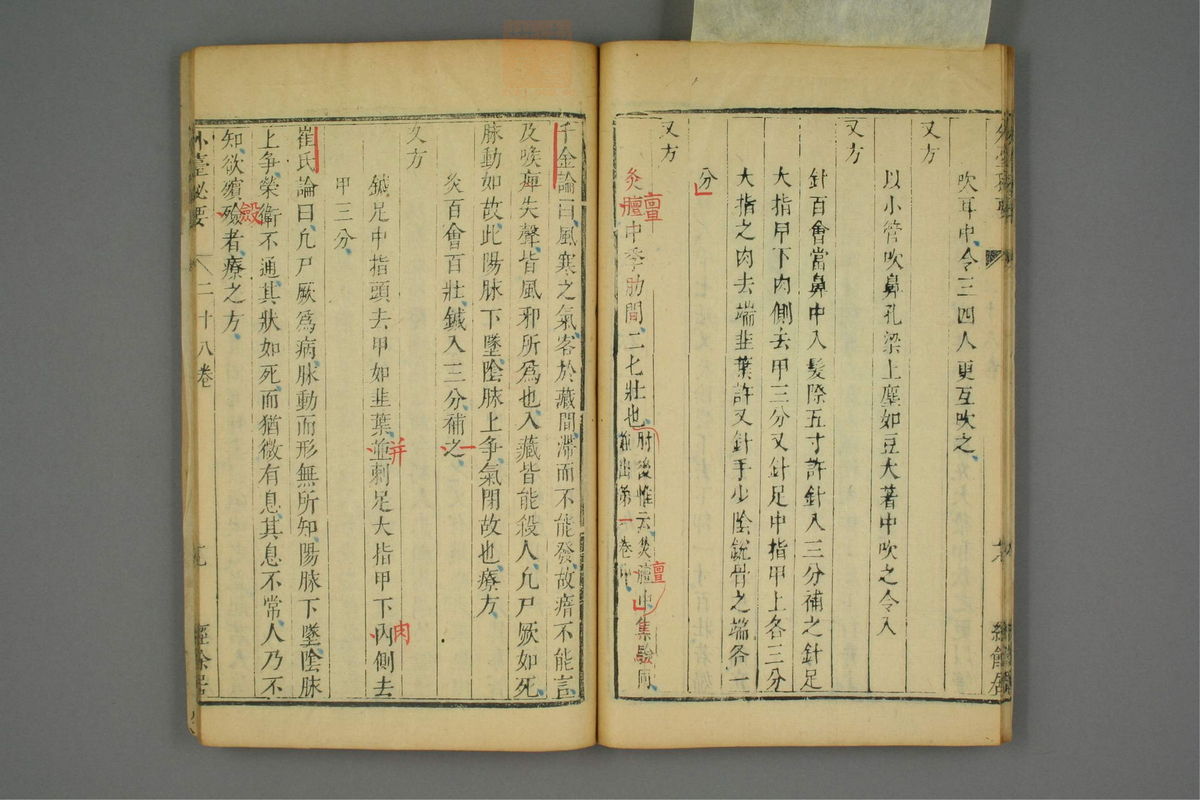 吹耳中、令三四人更互吹之、
又方
以小管吹鼻孔梁上塵如豆大著中吹之令入
又方
針百會當鼻中入髮際五寸許針入三分補之針足
大指甲下肉側去甲三分又針足中指甲上各三分
大指之肉去端韭葉許又針手少陰銳骨之端各一
分
又方
灸膻中季肋間、二七壯也、肘後惟云、灸膻中、集驗同、
並出第一卷中、
檀
檀
千金論曰、風寒之氣、客於藏間、滯而不能發、故瘖不能言、
及喉痺失聲、皆風邪所爲也、入藏皆能殺人、凡尸厥如死、
脉動如故、此陽脉下墜、陰脉上爭、氣閉故也、療方
灸百會百壯、鍼入三分、補之、
又方
鍼足中指頭去甲如韭葉、並刺足大指甲下內側去
甲三分、
并
肉
崔氏論曰、凡尸厥爲病、脉動而形無所知、陽脉下墜、陰脉
上爭、榮衞不通、其狀如死、而猶微有息、其息不常、人乃不
知、欲殯殮者、療之方、
殮
外臺秘要
二十八卷
經餘居